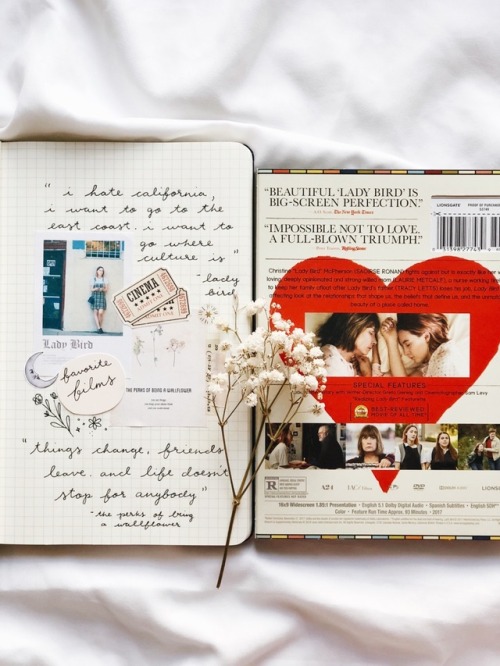 " i hate california,
i want to go to the
east coast. i want to
go where
culture is "
-lady
bird
CINEMA
Lady Bird
favorite
films
THE PERKS OF BEING A WALLFLOWER
"things change, friends
leave. and life doesn't
stop for anybody"
- the perks of being
a wallflower
"BEAUTIFUL. 'LADY BIRD' IS
BIG-SCREEN PERFECTION."
The New York Times
"IMPOSSIBLE NOT TO LOVE.
A FULL-BLOWN TRIUMPH."
RollingStone
LIONSGATE
PROOF OF PURCHASE
Christine "Lady Bird" McPherson (SAOIRSE RONAN) fights against but is exactly like her
loving, deeply opinionated and strong-willed mom (LAURIE METCALF), a nurse working
to keep her family afloat after Lady Bird's father (TRACY LETTS) loses his job. Lady Bird
affecting look at the relationships that shape us, the beliefs that define us, and the
beauty of a place called home.
SPECIAL FEATURES
BEST-REVIEWED
R
RESTRICTED
A24
IAC
DOLBY
LIONSGATE
16x9 Widescreen 1.85:1 Presentation • English 5.1 Dolby Digital Audio • Spanish Subtitles • English SDH
Color • Feature Run Time Approx. 93 Minutes • 2017